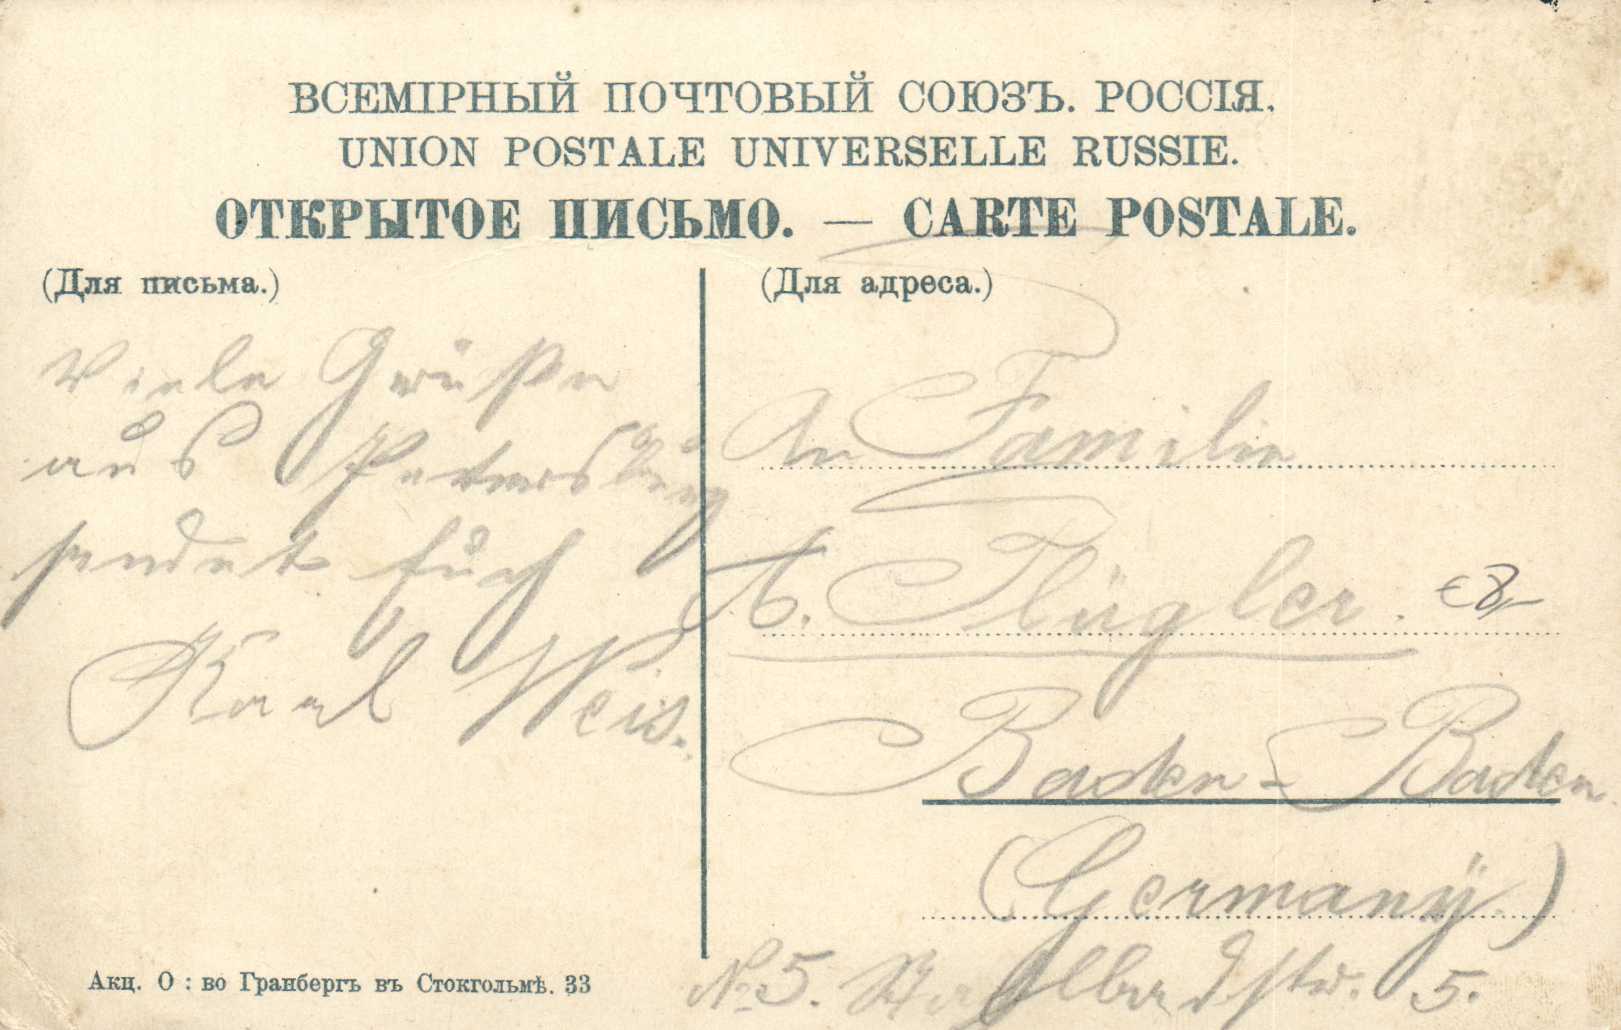 ВСЕМІРНЫЙ ПОЧТОВЫЙ СОЮЗЪ. РОССІЯ.
UNION POSTALE UNIVERSELLE RUSSIE.
ОТКРЫТОЕ ПИСЬМО. — CARTE POSTALE.
(Для письма.)
Viele Grüße
aus Petersburg
sendet Euch
Karl Weis.
(Для адреса.)
An Familie
A. Flügler.
€8,-
Baden-Baden.
(Germanÿ.)
No 5. str. 5.
Акц. О : во Гранбергъ въ Стокгольмѣ. 33